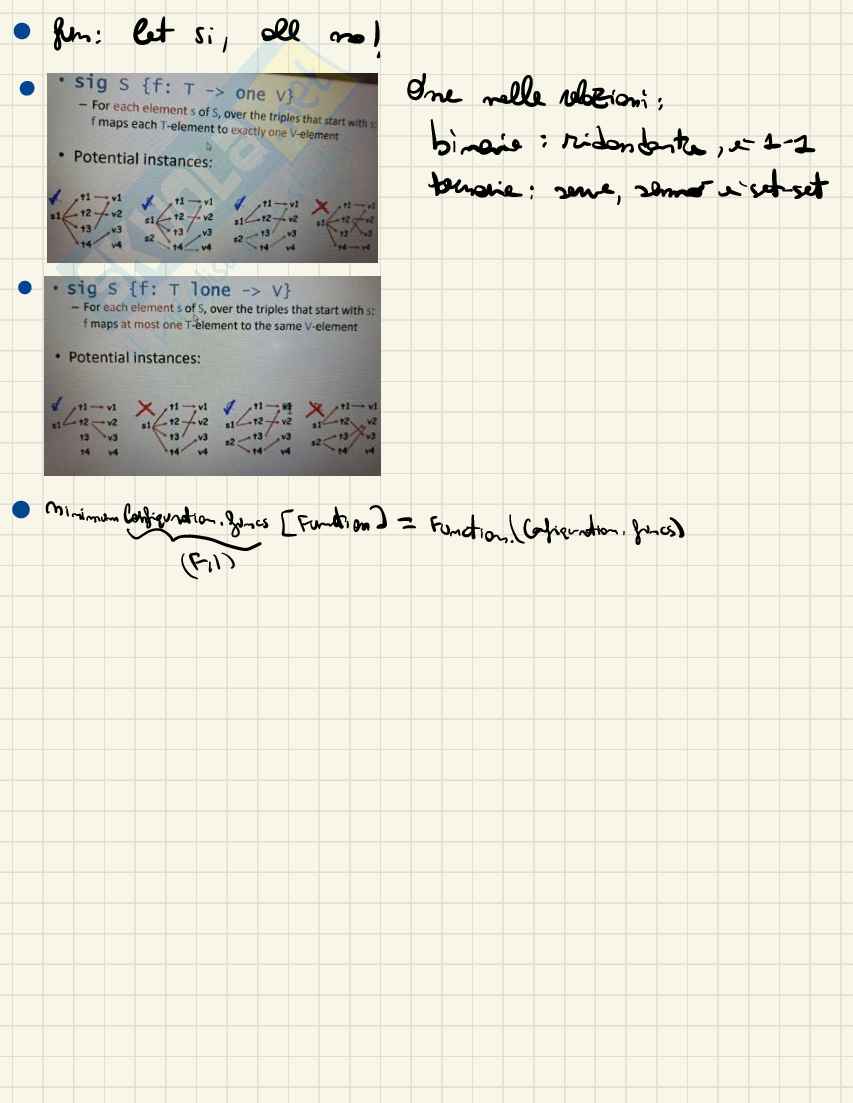 fun: let si, all no!
• sig S {f: T -> one V}
– For each element s of S, over the triples that start with s:
f maps each T-element to exactly one V-element
• Potential instances:
s1 t1 v1 t2 v2 t3 v3 t4 v4
s1 s2 t1 v1 t2 v2 t3 v3 t4 v4
s1 s2 t1 v1 t2 v2 t3 v3 t4 v4
s1 t1 v1 t2 v2 t3 v3 t4 v4
One nelle relazioni:
binarie: ridondante, è 1-1
ternarie: serve, sennò è set-set
• sig S {f: T lone -> V}
– For each element s of S, over the triples that start with s:
f maps at most one T-element to the same V-element
• Potential instances:
s1 t1 v1 t2 v2 t3 v3 t4 v4
s1 t1 v1 t2 v2 t3 v3 t4 v4
s1 s2 t1 t2 v2 t3 v3 t4 v4
s1 s2 t1 v1 t2 v2 t3 v3 t4 v4
Minimum Configuration.funcs [Function] = Function.(Configuration.funcs)
(F,1)